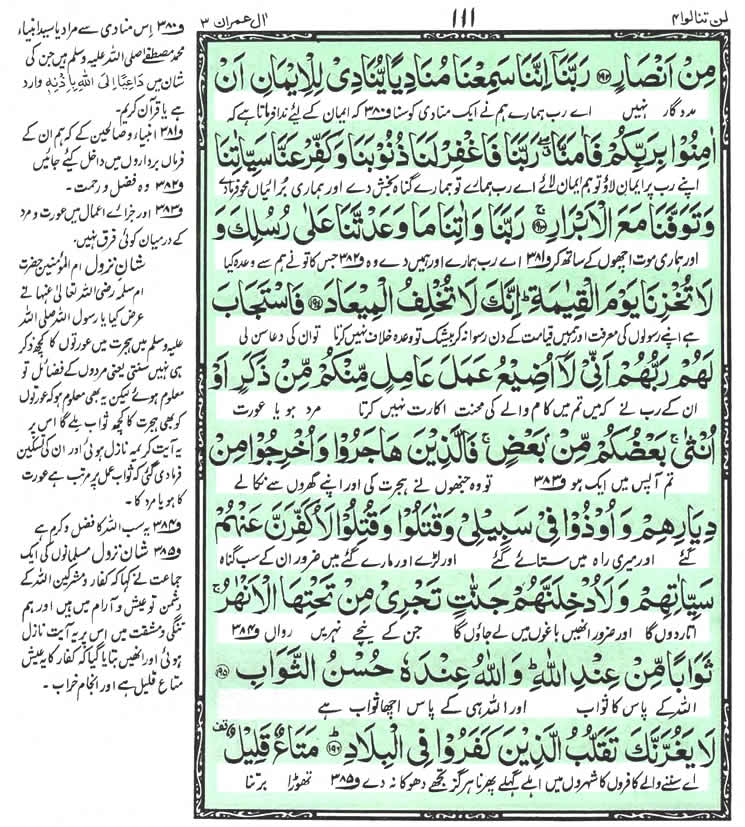 لن تنالوا ۴
۱۱۱
اٰل عمران ۳
مِنْ اَنْصَارٍ ﴿۱۹۲﴾ رَبَّنَاۤ اِنَّنَا سَمِعْنَا مُنَادِیًا یُّنَادِیْ لِلْاِیْمَانِ اَنْ
مددگار نہیں اے رب ہمارے ہم نے ایک منادی کو سنا ف۳۸۰ کہ ایمان کے لیئے ندا فرماتا ہے کہ
اٰمِنُوْا بِرَبِّكُمْ فَاٰمَنَّا ۖ رَبَّنَا فَاغْفِرْ لَنَا ذُنُوْبَنَا وَكَفِّرْ عَنَّا سَیِّاٰتِنَا
اپنے رب پر ایمان لاؤ تو ہم ایمان لائے اے رب ہمارے تو ہمارے گناہ بخش دے اور ہماری برائیاں محو فرمادے
وَتَوَفَّنَا مَعَ الْاَبْرَارِ ﴿۱۹۳﴾ رَبَّنَا وَاٰتِنَا مَا وَعَدْتَّنَا عَلٰی رُسُلِكَ وَ
اور ہماری موت اچھوں کے ساتھ کر ف۳۸۱ اے رب ہمارے اور ہمیں دے وہ ف۳۸۲ جس کا تو نے ہم سے وعدہ کیا
لَا تُخْزِنَا یَوْمَ الْقِیٰمَةِ ؕ اِنَّكَ لَا تُخْلِفُ الْمِیْعَادَ ﴿۱۹۴﴾ فَاسْتَجَابَ
ہے اپنے رسولوں کی معرفت اور ہمیں قیامت کے دن رسوا نہ کر بیشک تو وعدہ خلاف نہیں کرتا تو ان کی دعا سن لی
لَهُمْ رَبُّهُمْ اَنِّیْ لَاۤ اُضِیْعُ عَمَلَ عَامِلٍ مِّنْكُمْ مِّنْ ذَكَرٍ اَوْ
ان کے رب نے کہ میں تم میں کام والے کی محنت اکارت نہیں کرتا مرد ہو یا عورت
اُنْثٰی ۚ بَعْضُكُمْ مِّنْۢ بَعْضٍ ۚ فَالَّذِیْنَ هَاجَرُوْا وَاُخْرِجُوْا مِنْ
تم آپس میں ایک ہو ف۳۸۳ تو وہ جنھوں نے ہجرت کی اور اپنے گھروں سے نکالے
دِیَارِهِمْ وَاُوْذُوْا فِیْ سَبِیْلِیْ وَقٰتَلُوْا وَقُتِلُوْا لَاُكَفِّرَنَّ عَنْهُمْ
گئے اور میری راہ میں ستائے گئے اور لڑے اور مارے گئے میں ضرور ان کے سب گناہ
سَیِّاٰتِهِمْ وَلَاُدْخِلَنَّهُمْ جَنّٰتٍ تَجْرِیْ مِنْ تَحْتِهَا الْاَنْهٰرُ ۚ
اتار دوں گا اور ضرور انھیں باغوں میں لے جاؤں گا جن کے نیچے نہریں رواں ف۳۸۴
ثَوَابًا مِّنْ عِنْدِ اللّٰهِ ؕ وَاللّٰهُ عِنْدَهٗ حُسْنُ الثَّوَابِ ﴿۱۹۵﴾
اللہ کے پاس کا ثواب اور اللہ ہی کے پاس اچھا ثواب ہے
لَا یَغُرَّنَّكَ تَقَلُّبُ الَّذِیْنَ كَفَرُوْا فِی الْبِلَادِ ﴿۱۹۶﴾ مَتَاعٌ قَلِیْلٌ
اے سننے والے کافروں کا شہروں میں اہلے گہلے پھرنا ہرگز تجھے دھوکا نہ دے ف۳۸۵ تھوڑا برتنا
ف۳۸۰ اس منادی سے مراد یا سید انبیاء
محمد مصطفے صلی اللہ علیہ وسلم ہیں جن کی
شان میں دَاعِیًا اِلَی اللّٰهِ بِاِذْنِهٖ وارد
ہے یا قرآن کریم۔
ف۳۸۱ انبیاء و صالحین کے کہ ہم ان کے
فرماں برداروں میں داخل کیئے جائیں
ف۳۸۲ وہ فضل و رحمت۔
ف۳۸۳ اور جزائے اعمال میں عورت و مرد
کے درمیان کوئی فرق نہیں۔
شان نزول ام المؤمنین حضرت
ام سلمہ رضی اللہ تعالیٰ عنہا نے
عرض کیا یا رسول اللہ صلی اللہ
علیہ وسلم میں ہجرت میں عورتوں کا کچھ ذکر
ہی نہیں سنتی یعنی مردوں کے فضائل تو
معلوم ہوئے لیکن یہ بھی معلوم ہو کہ عورتوں
کو بھی ہجرت کا کچھ ثواب ملے گا اس پر
یہ آیت کریمہ نازل ہوئی اور ان کی تسکین
فرمادی گئی کہ ثواب عمل پر مرتب ہے عورت
کا ہو یا مرد کا۔
ف۳۸۴ یہ سب اللہ کا فضل و کرم ہے
ف۳۸۵ شان نزول مسلمانوں کی ایک
جماعت نے کہا کہ کفار و مشرکین اللہ کے
دشمن تو عیش و آرام میں ہیں اور ہم
تنگی و مشقت میں اس پر یہ آیت نازل
ہوئی اور انھیں بتایا گیا کہ کفار کا یہ عیش
متاع قلیل ہے اور انجام خراب۔